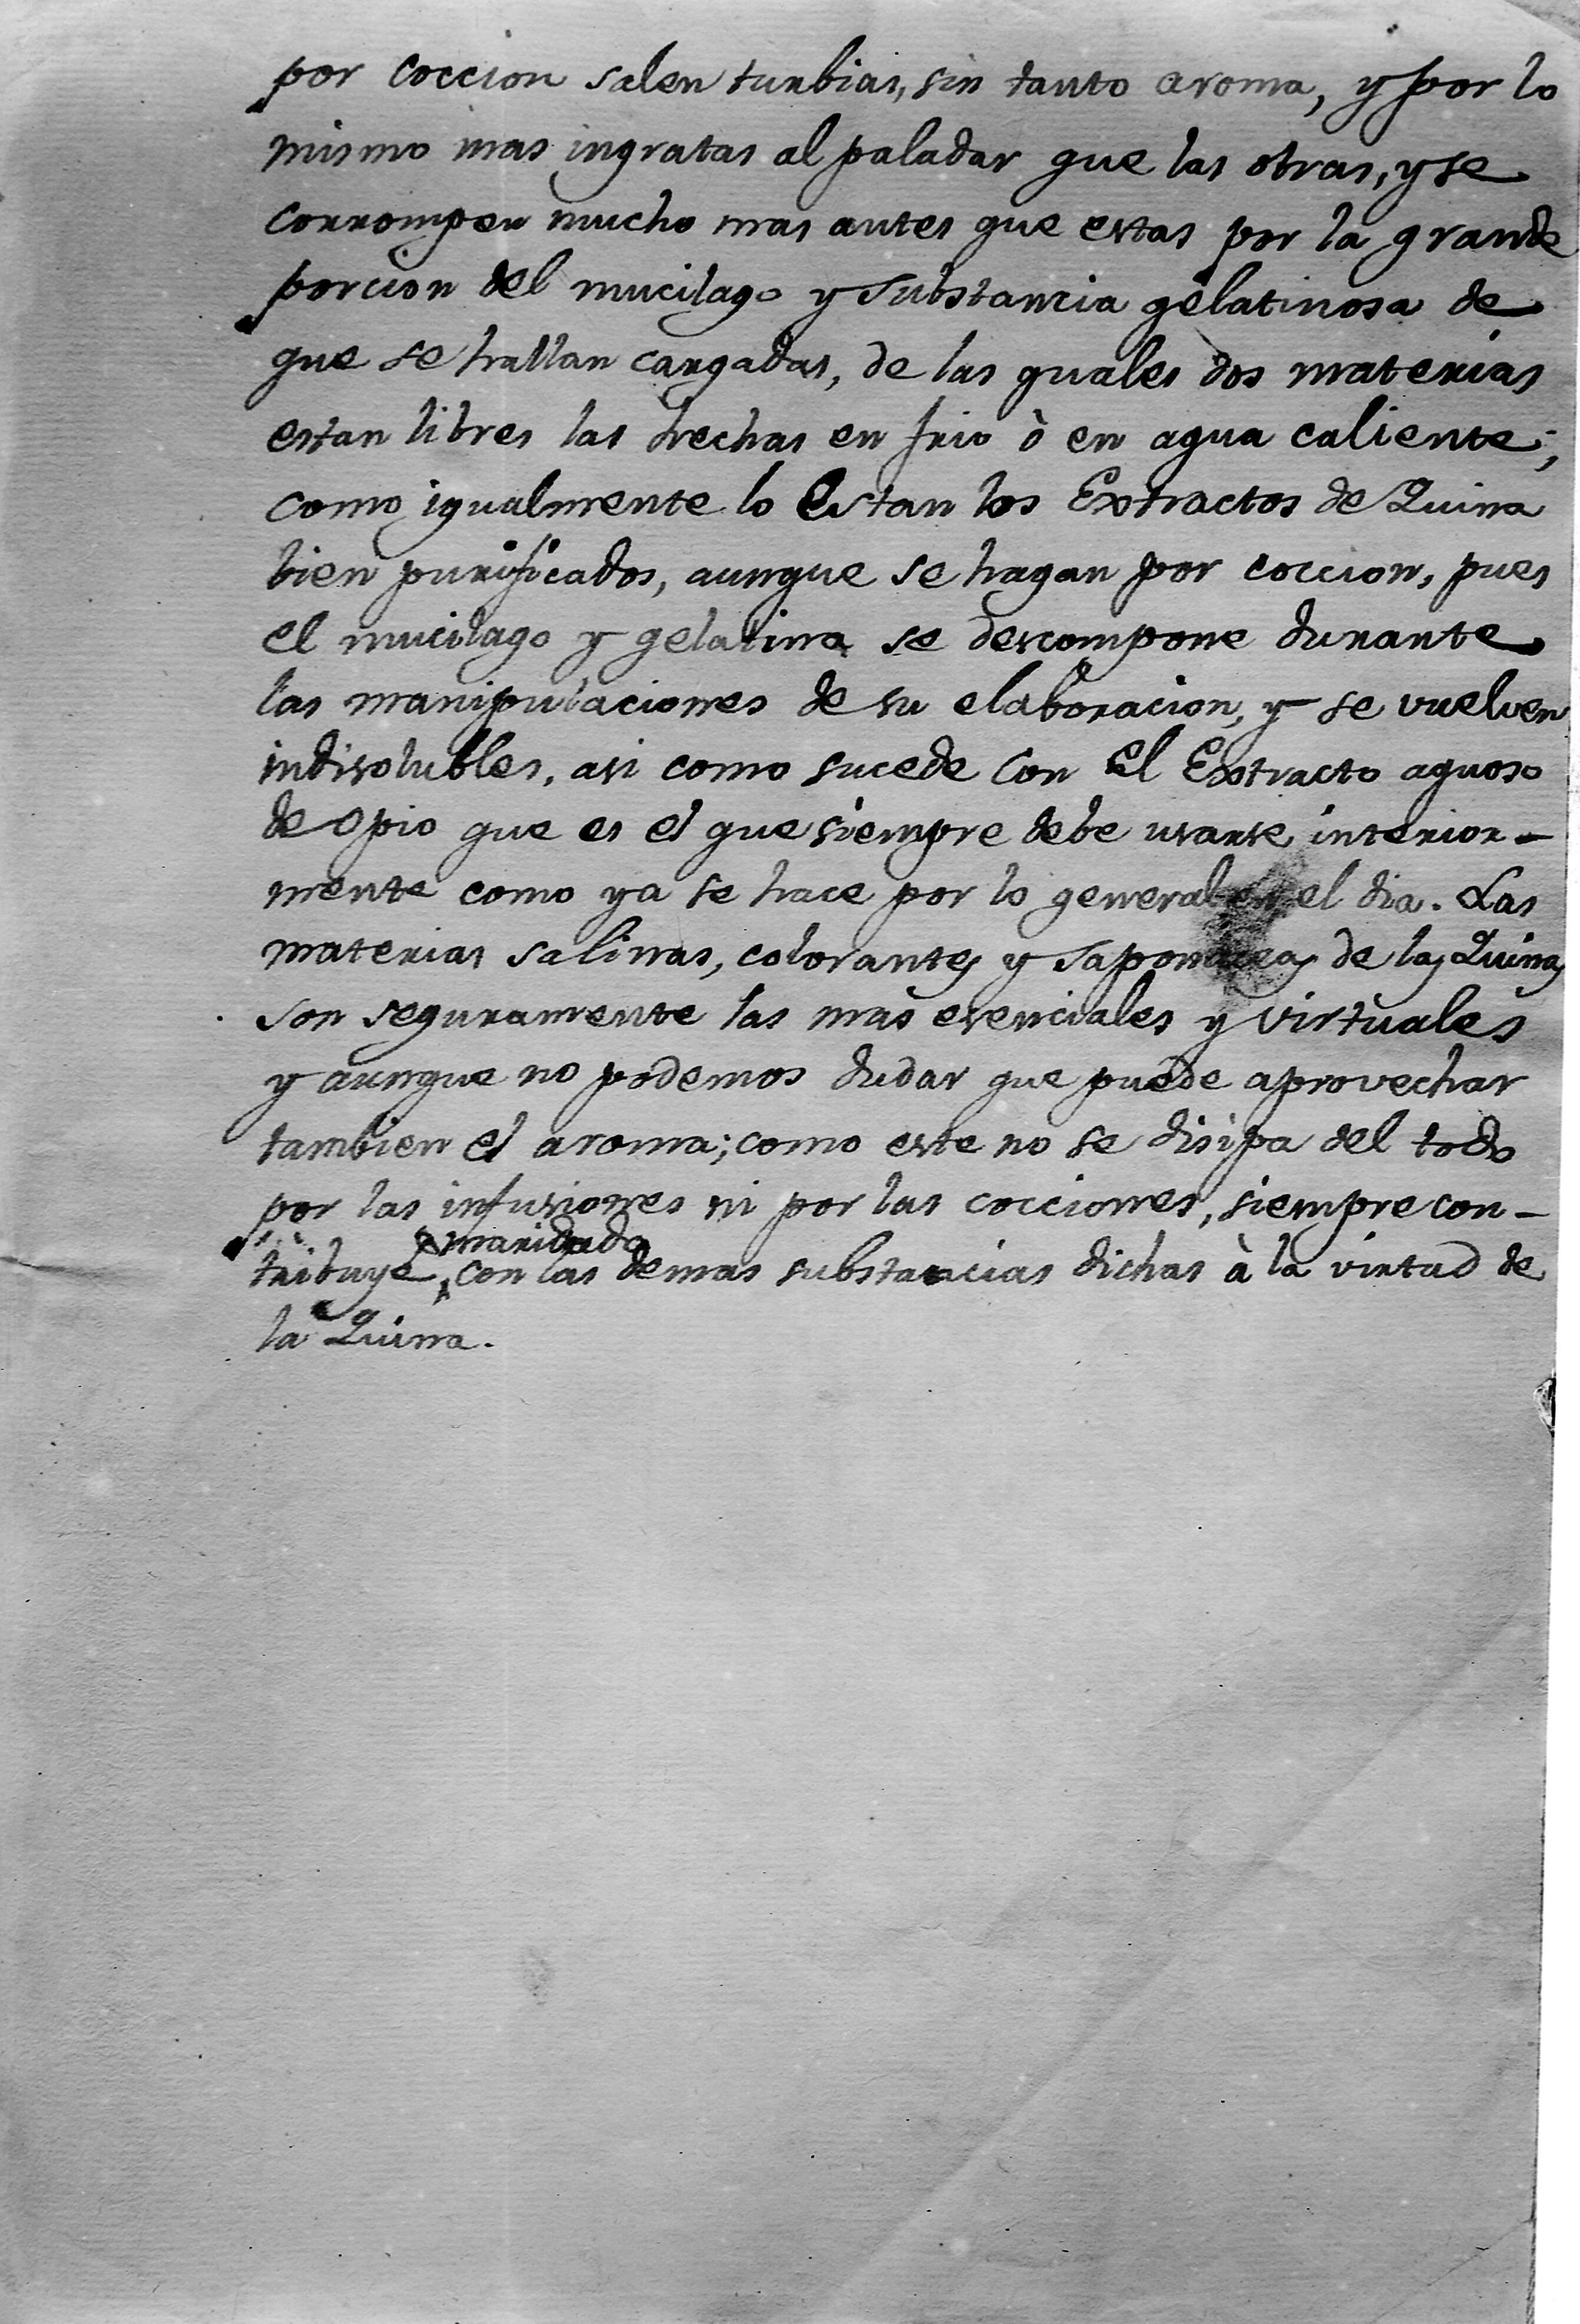 por coccion salen turbias, sin tanto aroma, y por lo
mismo mas ingratas al paladar que las otras, y se
corrompen mucho mas antes que estas por la grande
porcion del mucilago y substancia gelatinosa de
que se hallan cargadas, de las quales dos materias
estan libres las hechas en frio ò en agua caliente;
como igualmente lo Estan los Extractos de Quina
bien purificados, aunque se hagan por coccion, pues
el mucilago y gelatina se descompone durante
las manipulaciones de su elaboracion, y se vuelven
indisolubles, asi como sucede con El Extracto aquoso
de Opio que es el que siempre debe usarse interior-
mente como ya se hace por lo general en el dia. Las
materias salinas, colorantes y saponaceas de las Quinas
son seguramente las mas esenciales y virtuales
y aunque no podemos dudar que puede aprovechar
tambien el aroma; como este no se disipa del todo
por las infusiones ni por las cocciones, siempre con-
maridado
tribuye con las demas substancias dichas à la virtud de
la Quina.